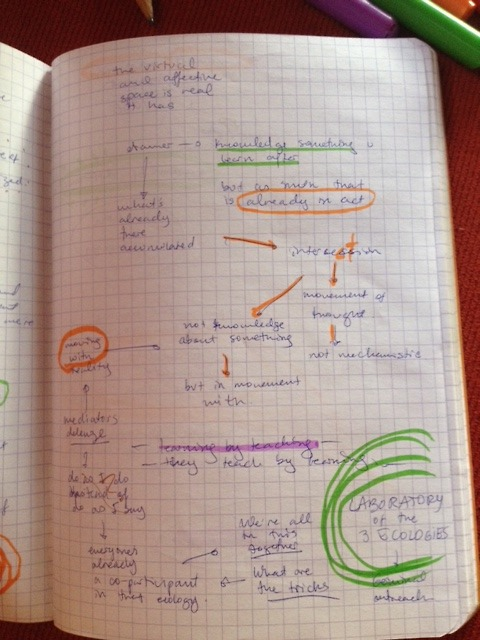 the virtual
and affective
space is real
it has
knowledge something is
born after
but as smth that
is already in act
what's
already
there
accumulated
intercession
movement of
thought
not mechanistic
not knowledge
about something
but in movement
with
moving
with
reality
mediators
deleuze
learning by teaching
they teach by learning
do as I do
instead of
do as I say
everyone's
already
a co-participant
in that ecology.
We're all
in this
together
What are
the tricks
LABORATORY
of the
3 ECOLOGIES
outreach